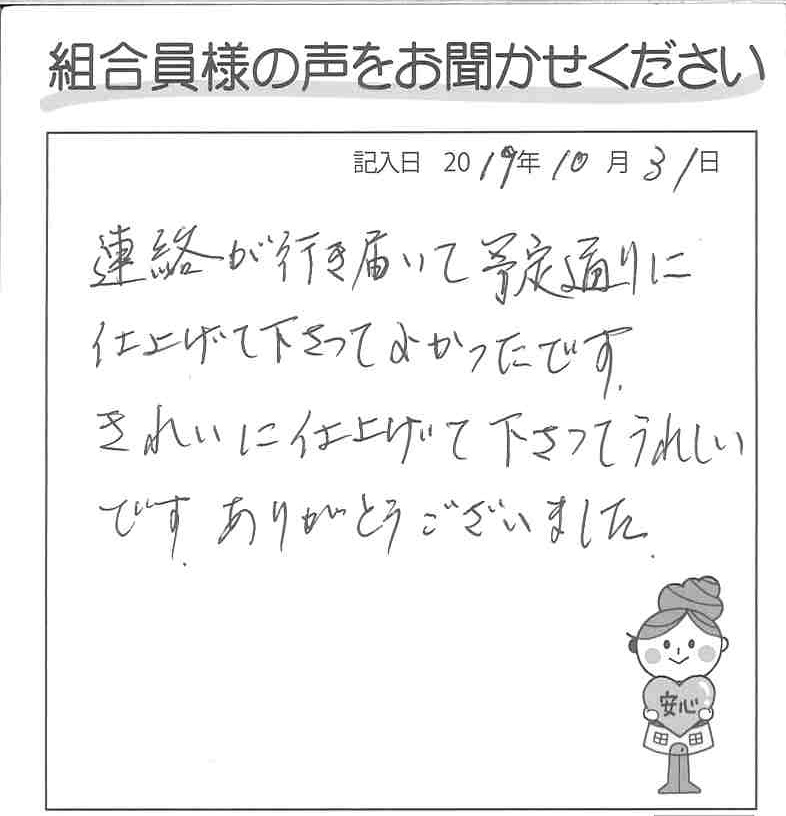 組合員様の声をお聞かせください
記入日 2019年10月31日
連絡が行き届いて予定通りに
仕上げて下さってよかったです.
きれいに仕上げて下さってうれしい
です. ありがとうございました.
安心